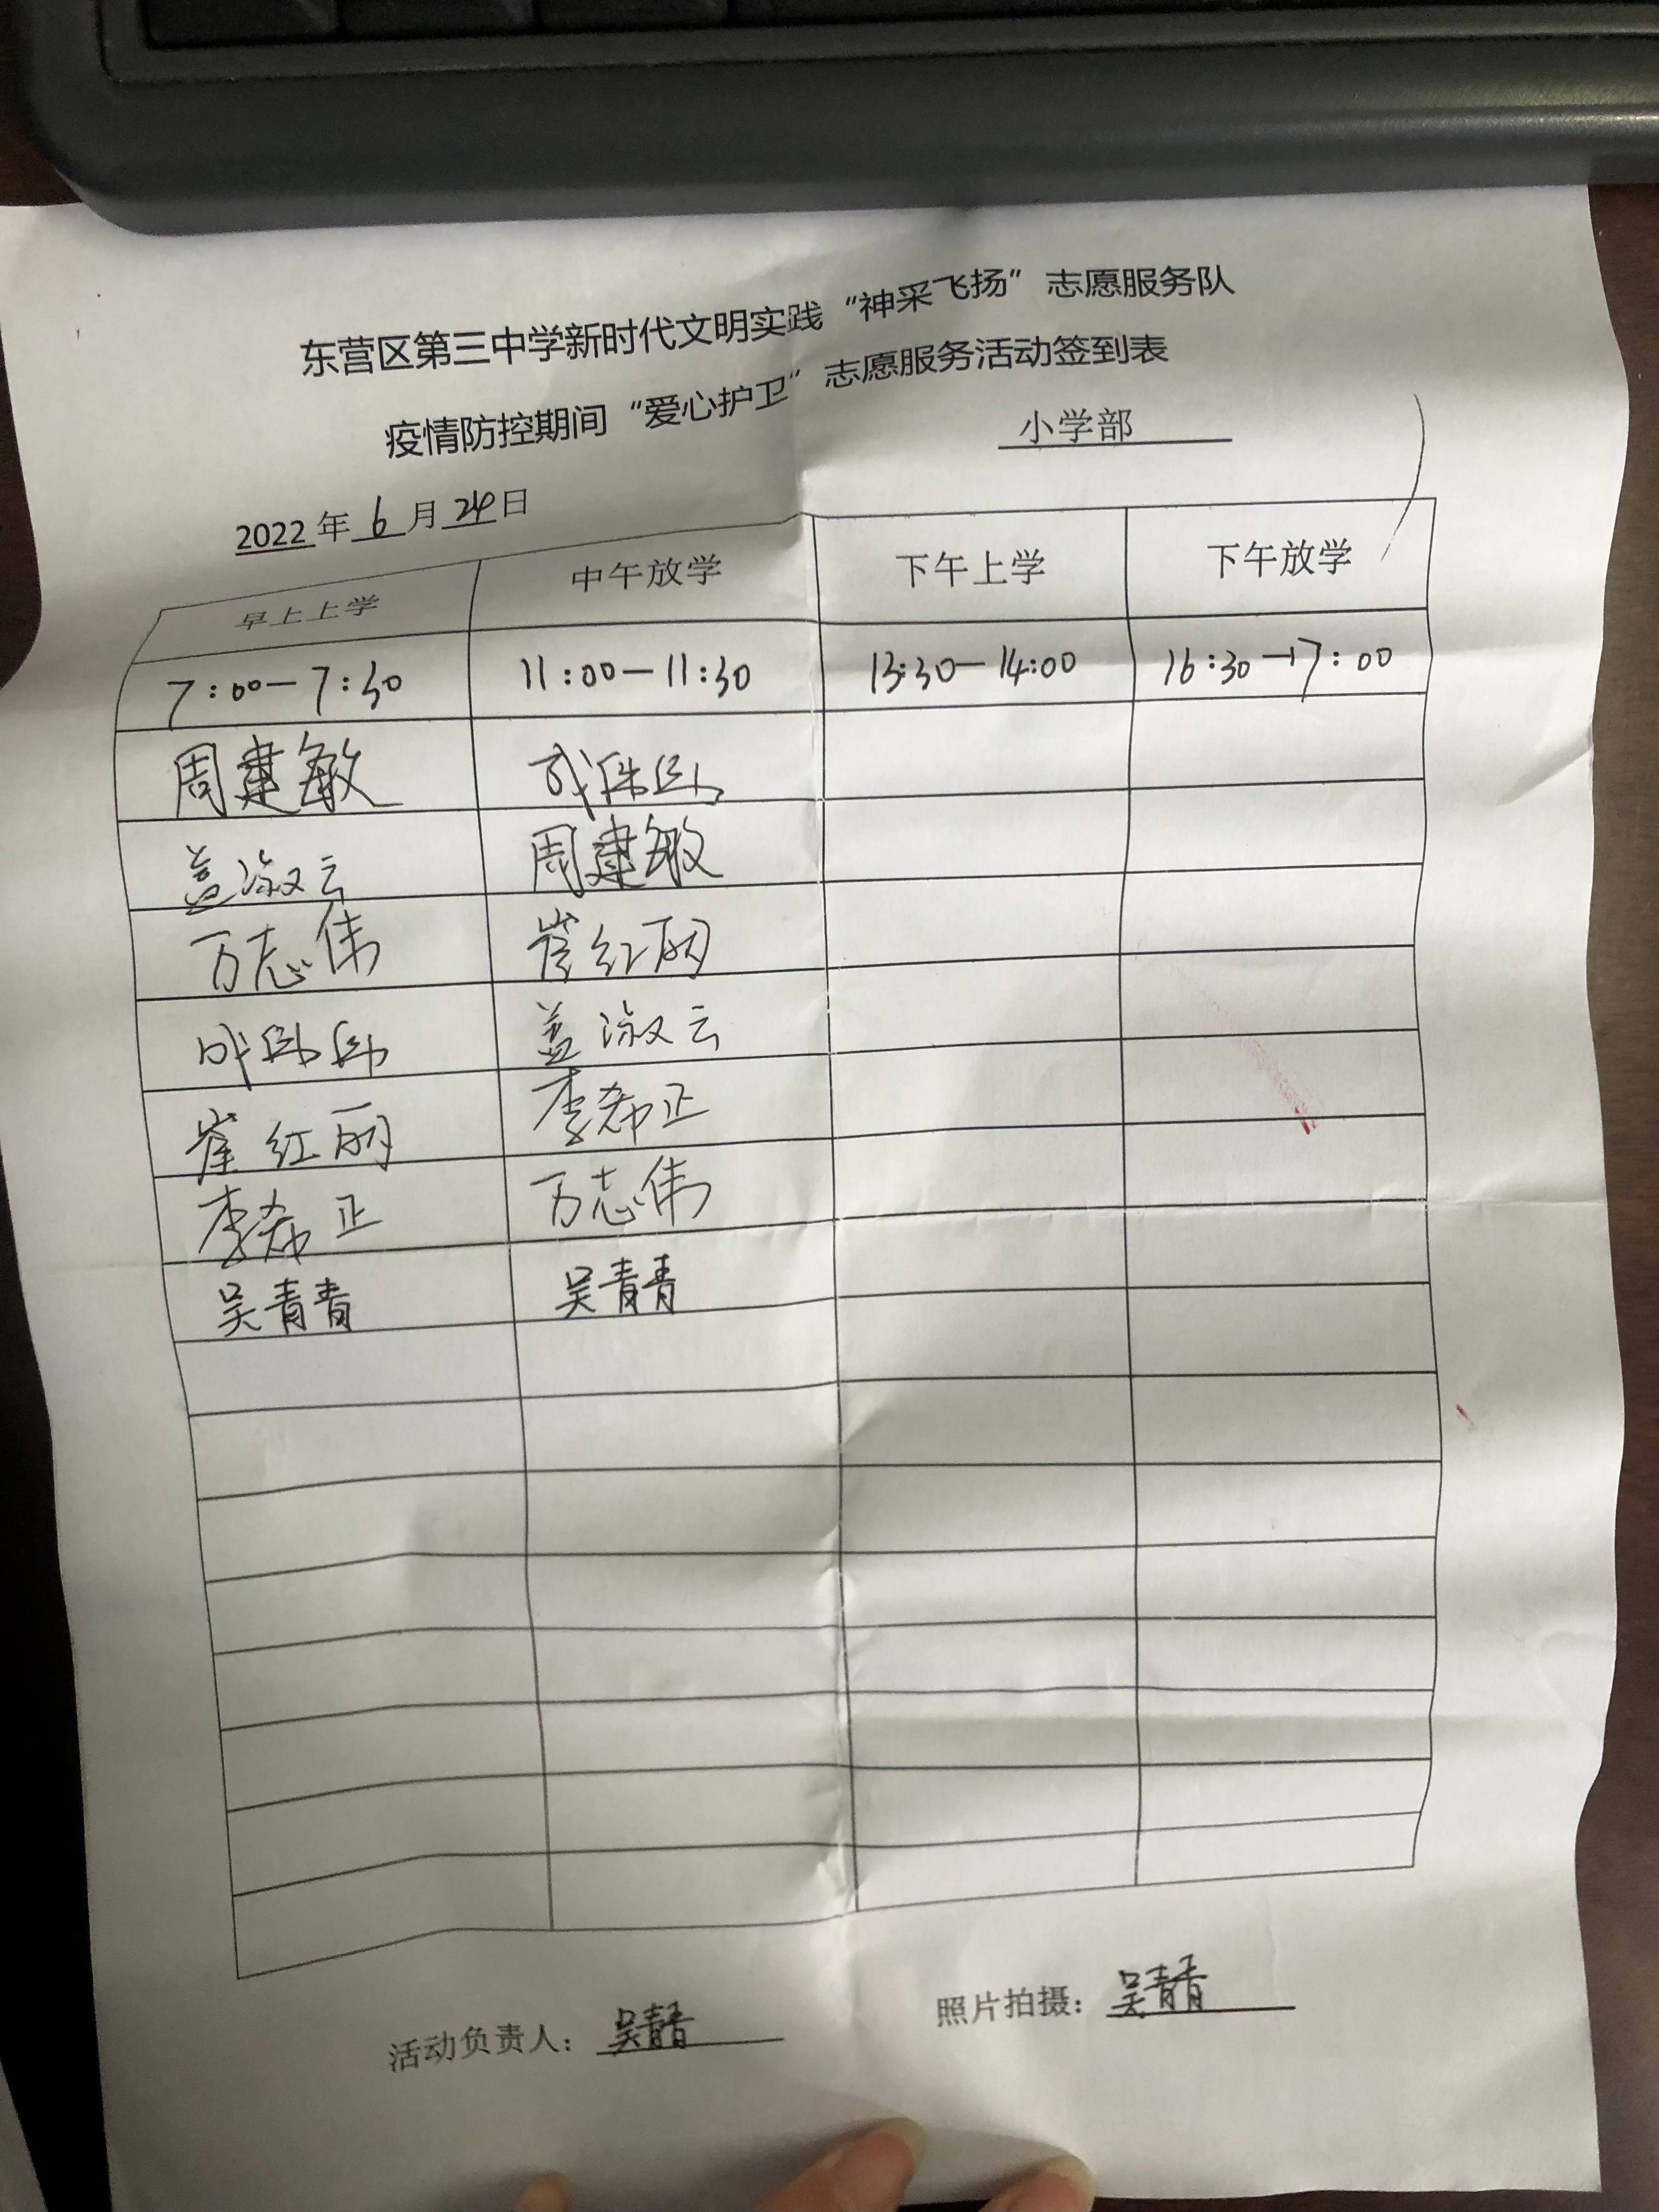 东营区第三中学新时代文明实践“神采飞扬”志愿服务队
疫情防控期间“爱心护卫”志愿服务活动签到表
小学部
2022年6月24日
早上上学 中午放学 下午上学 下午放学
7:00—7:30 11:00—11:30 13:30—14:00 16:30—17:00
周建敏
盖淑云 周建敏
万志伟 崔红丽
盖淑云
崔红丽 李希正
李希正 万志伟
吴青青 吴青青
活动负责人：吴青青 照片拍摄：吴青青